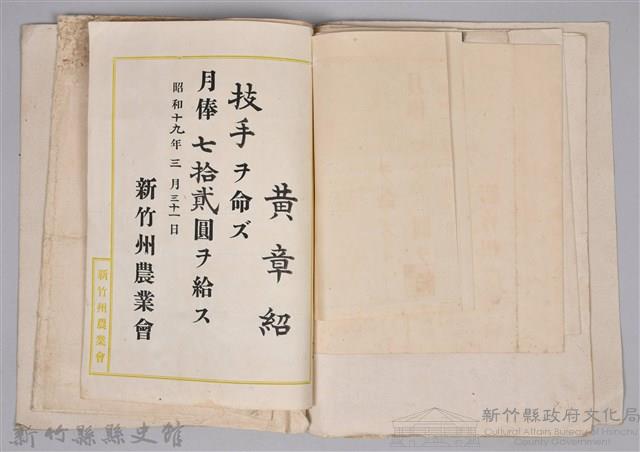 黄章紹
技手ヲ命ズ
月俸七拾貳圓ヲ給ス
昭和十九年三月三十一日
新竹州農業會
新竹州農業會
新竹縣縣史館
新竹縣政府文化局
Cultural Affairs Bureau of Hsinchu
County Government